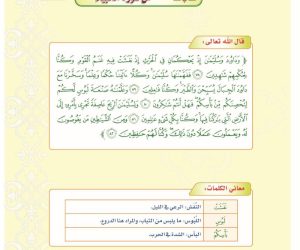 من سورة الأنبياء
قال الله تعالى:
﴿ وَدَاوُۥدَ وَسُلَيْمَٰنَ إِذْ يَحْكُمَانِ فِي ٱلْحَرْثِ إِذْ نَفَشَتْ فِيهِ غَنَمُ ٱلْقَوْمِ وَكُنَّا
لِحُكْمِهِمْ شَٰهِدِينَ ﴿٧٨﴾ فَفَهَّمْنَٰهَا سُلَيْمَٰنَ وَكُلًّا ءَاتَيْنَا حُكْمًا وَعِلْمًا وَسَخَّرْنَا مَعَ
دَاوُۥدَ ٱلْجِبَالَ يُسَبِّحْنَ وَٱلطَّيْرَ وَكُنَّا فَٰعِلِينَ ﴿٧٩﴾ وَعَلَّمْنَٰهُ صَنْعَةَ لَبُوسٍ لَّكُمْ
لِتُحْصِنَكُم مِّنۢ بَأْسِكُمْ فَهَلْ أَنتُمْ شَٰكِرُونَ ﴿٨٠﴾ وَلِسُلَيْمَٰنَ ٱلرِّيحَ عَاصِفَةً تَجْرِي بِأَمْرِهِۦٓ إِلَى
ٱلْأَرْضِ ٱلَّتِي بَٰرَكْنَا فِيهَا وَكُنَّا بِكُلِّ شَيْءٍ عَٰلِمِينَ ﴿٨١﴾ وَمِنَ ٱلشَّيَٰطِينِ مَن يَغُوصُونَ
لَهُۥ وَيَعْمَلُونَ عَمَلًا دُونَ ذَٰلِكَ وَكُنَّا لَهُمْ حَٰفِظِينَ ﴿٨٢﴾ ﴾
معاني الكلمات:
نَفَشَتْ النَّفْش: الرعي في الليل.
لَبُوسٍ اللَّبُوس: ما يلبس من الثياب، والمراد هنا الدروع.
بَأْسِكُمْ البأس: الشدة في الحرب.